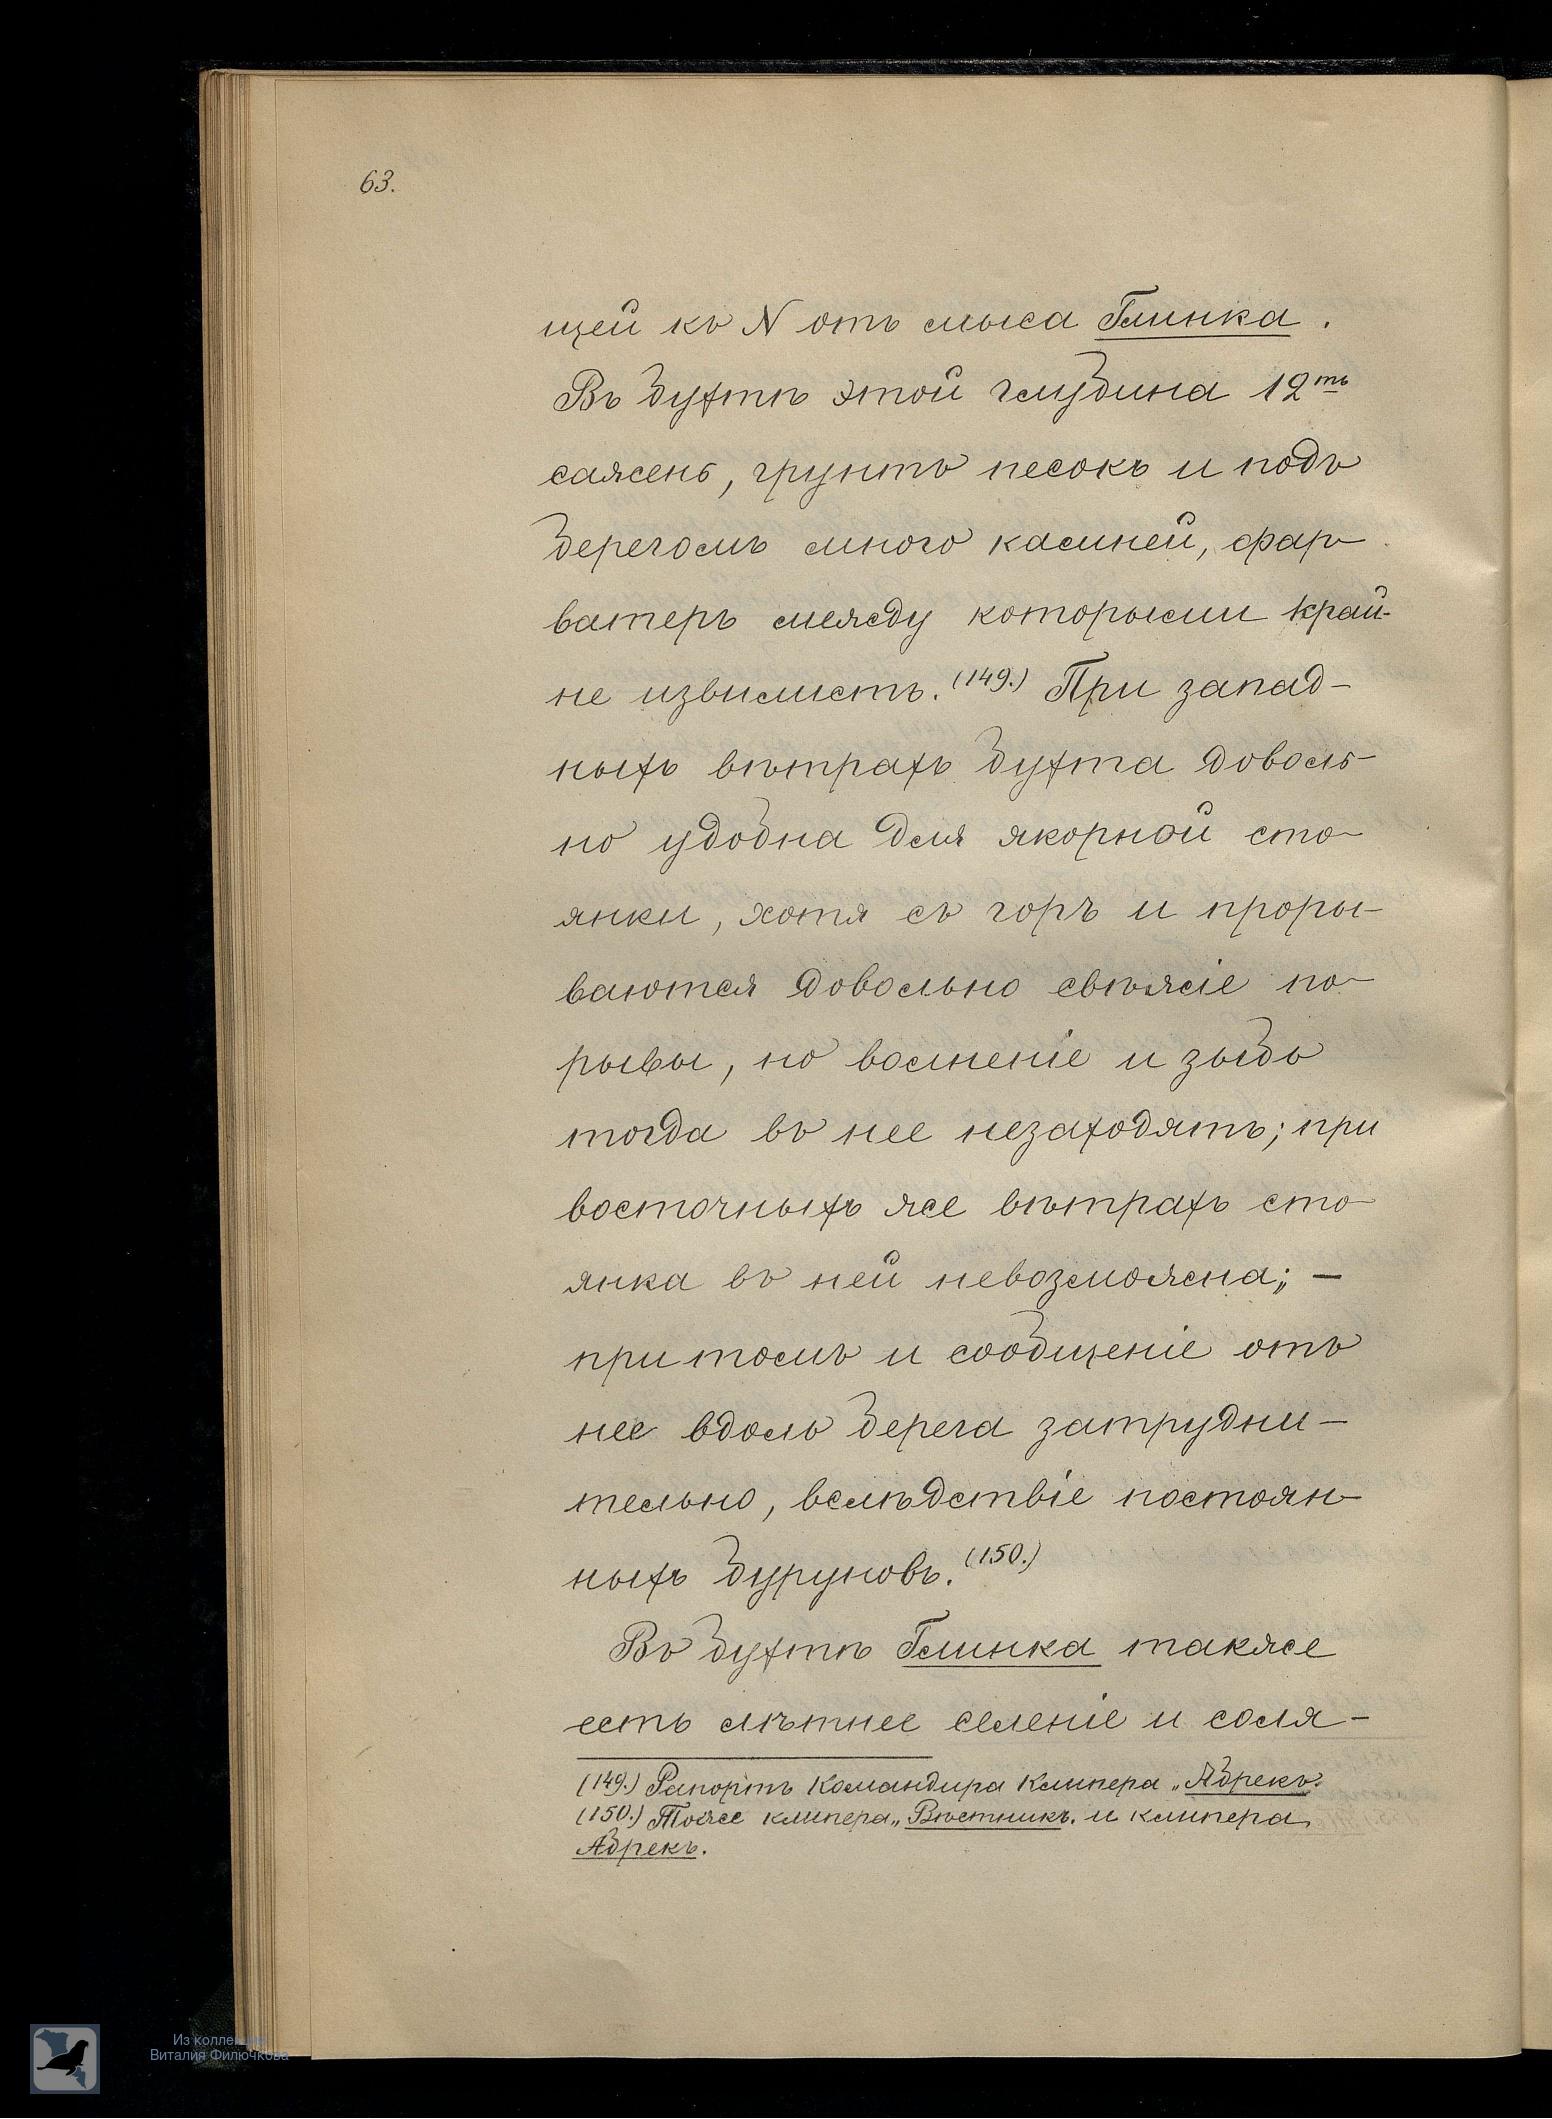 63.
щей къ N отъ мыса Глинка.
Въ бухтѣ этой глубина 12ть
сажень, грунтъ песокъ и подъ
берегомъ много камней, фар-
ватеръ между которыми край-
не извилистъ.(149.) При запад-
ныхъ вѣтрахъ бухта доволь-
но удобна для якорной сто-
янки, хотя съ горъ и проры-
ваются довольно свѣжіе по-
рывы, но волненіе и зыбь
тогда въ нее незаходятъ; при
восточныхъ же вѣтрахъ сто-
янка въ ней невозможна; —
притомъ и сообщеніе отъ
нее вдоль берега затрудни-
тельно, вслѣдствіе постоян-
ныхъ буруновъ.(150.)
Въ бухтѣ Глинка также
есть лѣтнее селеніе и соля-
(149.) Рапортъ Командира Клипера „Абрекъ.
(150.) Тоже клипера „Вѣстникъ. и клипера
Абрекъ.
Из коллекции
Виталия Филючкова